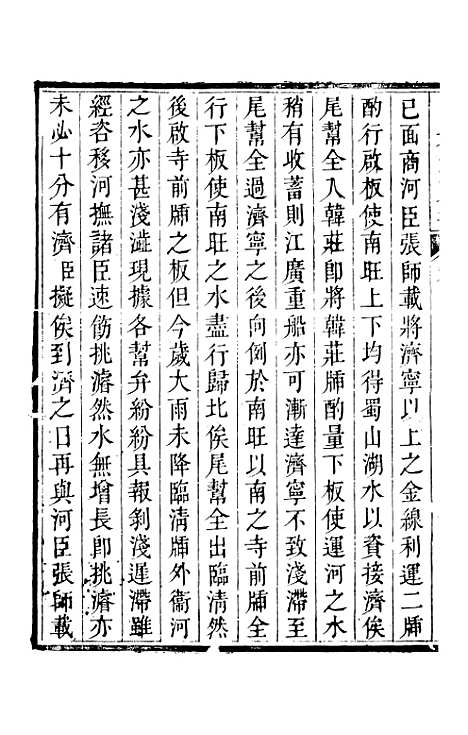 已面商河臣張師載將濟寧以上之金線利運二牐
酌行啟板使南旺上下均得蜀山湖水以資接濟俟
尾幫全入韓莊卽將韓莊牐酌量下板使運河之水
稍有收蓄則江廣重船亦可漸達濟寧不致淺滯至
尾幫全過濟寧之後向例於南旺以南之寺前牐全
行下板使南旺之水盡行歸北俟尾幫全出臨清然
後啟寺前牐之板但今歲大雨未降臨清牐外衞河
之水亦甚淺澁現據各幫弁紛紛具報剝淺遲滯雖
經咨移河撫諸臣速飭挑濬然水無增長卽挑濬亦
未必十分有濟臣擬俟到濟之日再與河臣張師載